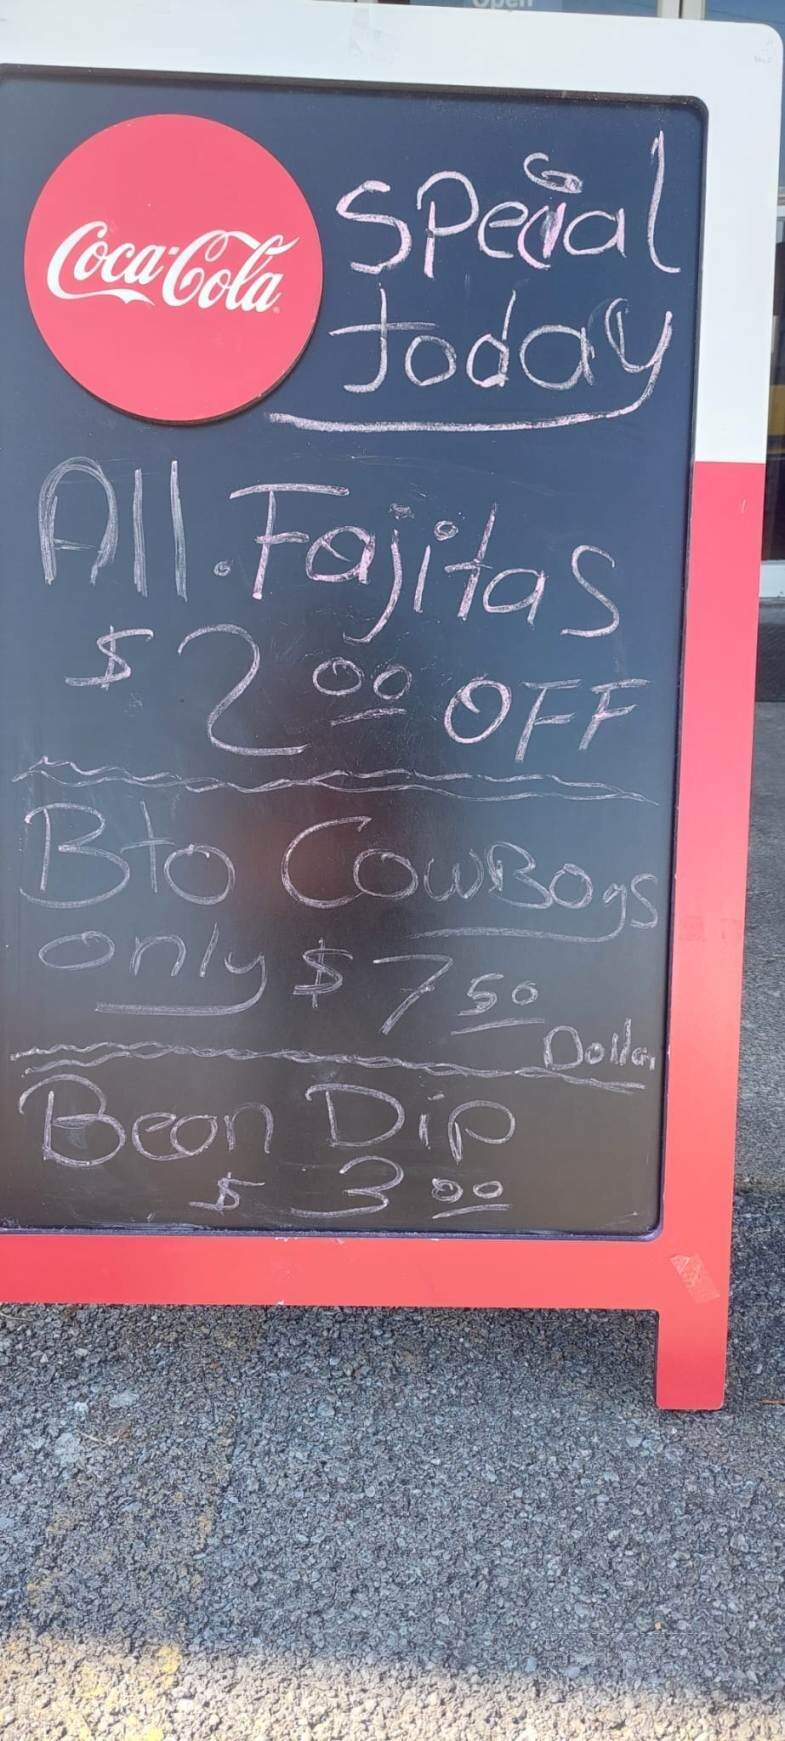 Open
Coca-Cola
Special
today
All. Fajitas
$2.00 OFF
Bto CowBoys
only $7.50
Dollar
Bean Dip
$3.00